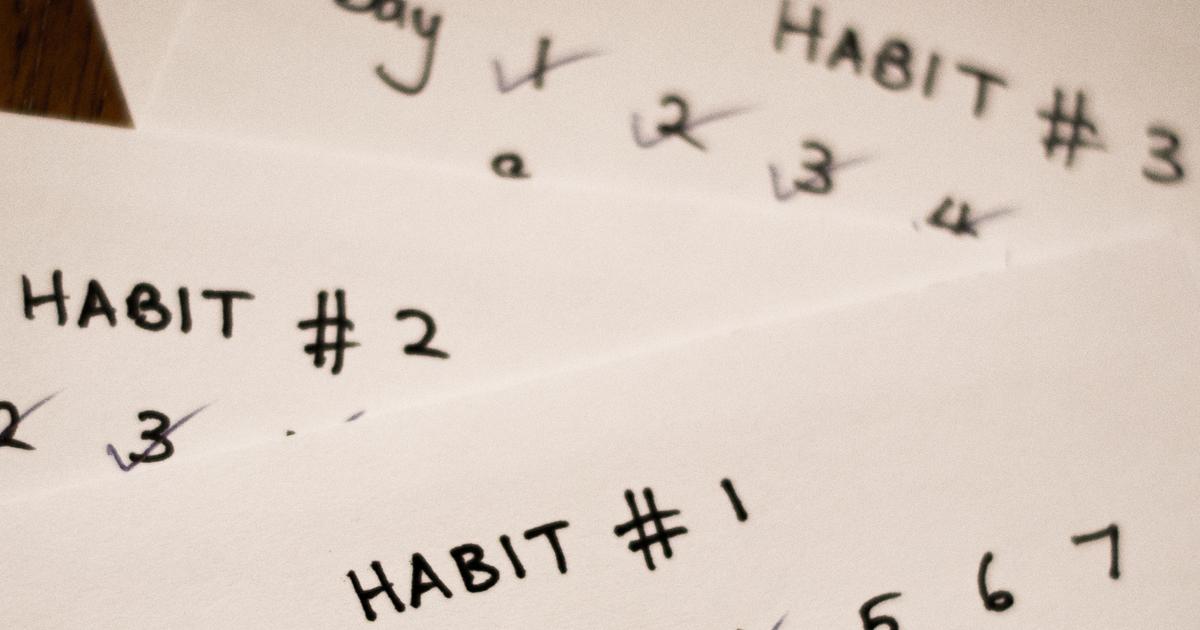 Day 1 2 3 4
HABIT # 3
HABIT # 2
2 3
HABIT # 1
5 6 7